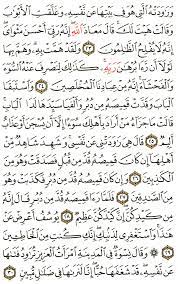 وَرَٰوَدَتْهُ ٱلَّتِى هُوَ فِى بَيْتِهَا عَن نَّفْسِهِۦ وَغَلَّقَتِ ٱلْأَبْوَٰبَ
وَقَالَتْ هَيْتَ لَكَ قَالَ مَعَاذَ ٱللَّهِ إِنَّهُۥ رَبِّىٓ أَحْسَنَ مَثْوَاىَ
إِنَّهُۥ لَا يُفْلِحُ ٱلظَّٰلِمُونَ ٢٣ وَلَقَدْ هَمَّتْ بِهِۦ وَهَمَّ بِهَا
لَوْلَآ أَن رَّءَا بُرْهَٰنَ رَبِّهِۦ كَذَٰلِكَ لِنَصْرِفَ عَنْهُ ٱلسُّوٓءَ
وَٱلْفَحْشَآءَ إِنَّهُۥ مِنْ عِبَادِنَا ٱلْمُخْلَصِينَ ٢٤ وَٱسْتَبَقَا
ٱلْبَابَ وَقَدَّتْ قَمِيصَهُۥ مِن دُبُرٍ وَأَلْفَيَا سَيِّدَهَا لَدَا ٱلْبَابِ
قَالَتْ مَا جَزَآءُ مَنْ أَرَادَ بِأَهْلِكَ سُوٓءًا إِلَّآ أَن يُسْجَنَ أَوْ عَذَابٌ
أَلِيمٌ ٢٥ قَالَ هِىَ رَٰوَدَتْنِى عَن نَّفْسِى وَشَهِدَ شَاهِدٌ مِّنْ
أَهْلِهَآ إِن كَانَ قَمِيصُهُۥ قُدَّ مِن قُبُلٍ فَصَدَقَتْ وَهُوَ مِنَ
ٱلْكَٰذِبِينَ ٢٦ وَإِن كَانَ قَمِيصُهُۥ قُدَّ مِن دُبُرٍ فَكَذَبَتْ وَهُوَ
مِنَ ٱلصَّٰدِقِينَ ٢٧ فَلَمَّا رَءَا قَمِيصَهُۥ قُدَّ مِن دُبُرٍ قَالَ إِنَّهُۥ
مِن كَيْدِكُنَّ إِنَّ كَيْدَكُنَّ عَظِيمٌ ٢٨ يُوسُفُ أَعْرِضْ عَنْ
هَٰذَا وَٱسْتَغْفِرِى لِذَنۢبِكِ إِنَّكِ كُنتِ مِنَ ٱلْخَاطِـِٔينَ
٢٩ وَقَالَ نِسْوَةٌ فِى ٱلْمَدِينَةِ ٱمْرَأَتُ ٱلْعَزِيزِ تُرَٰوِدُ فَتَىٰهَا
عَن نَّفْسِهِۦ قَدْ شَغَفَهَا حُبًّا إِنَّا لَنَرَىٰهَا فِى ضَلَٰلٍ مُّبِينٍ ٣٠